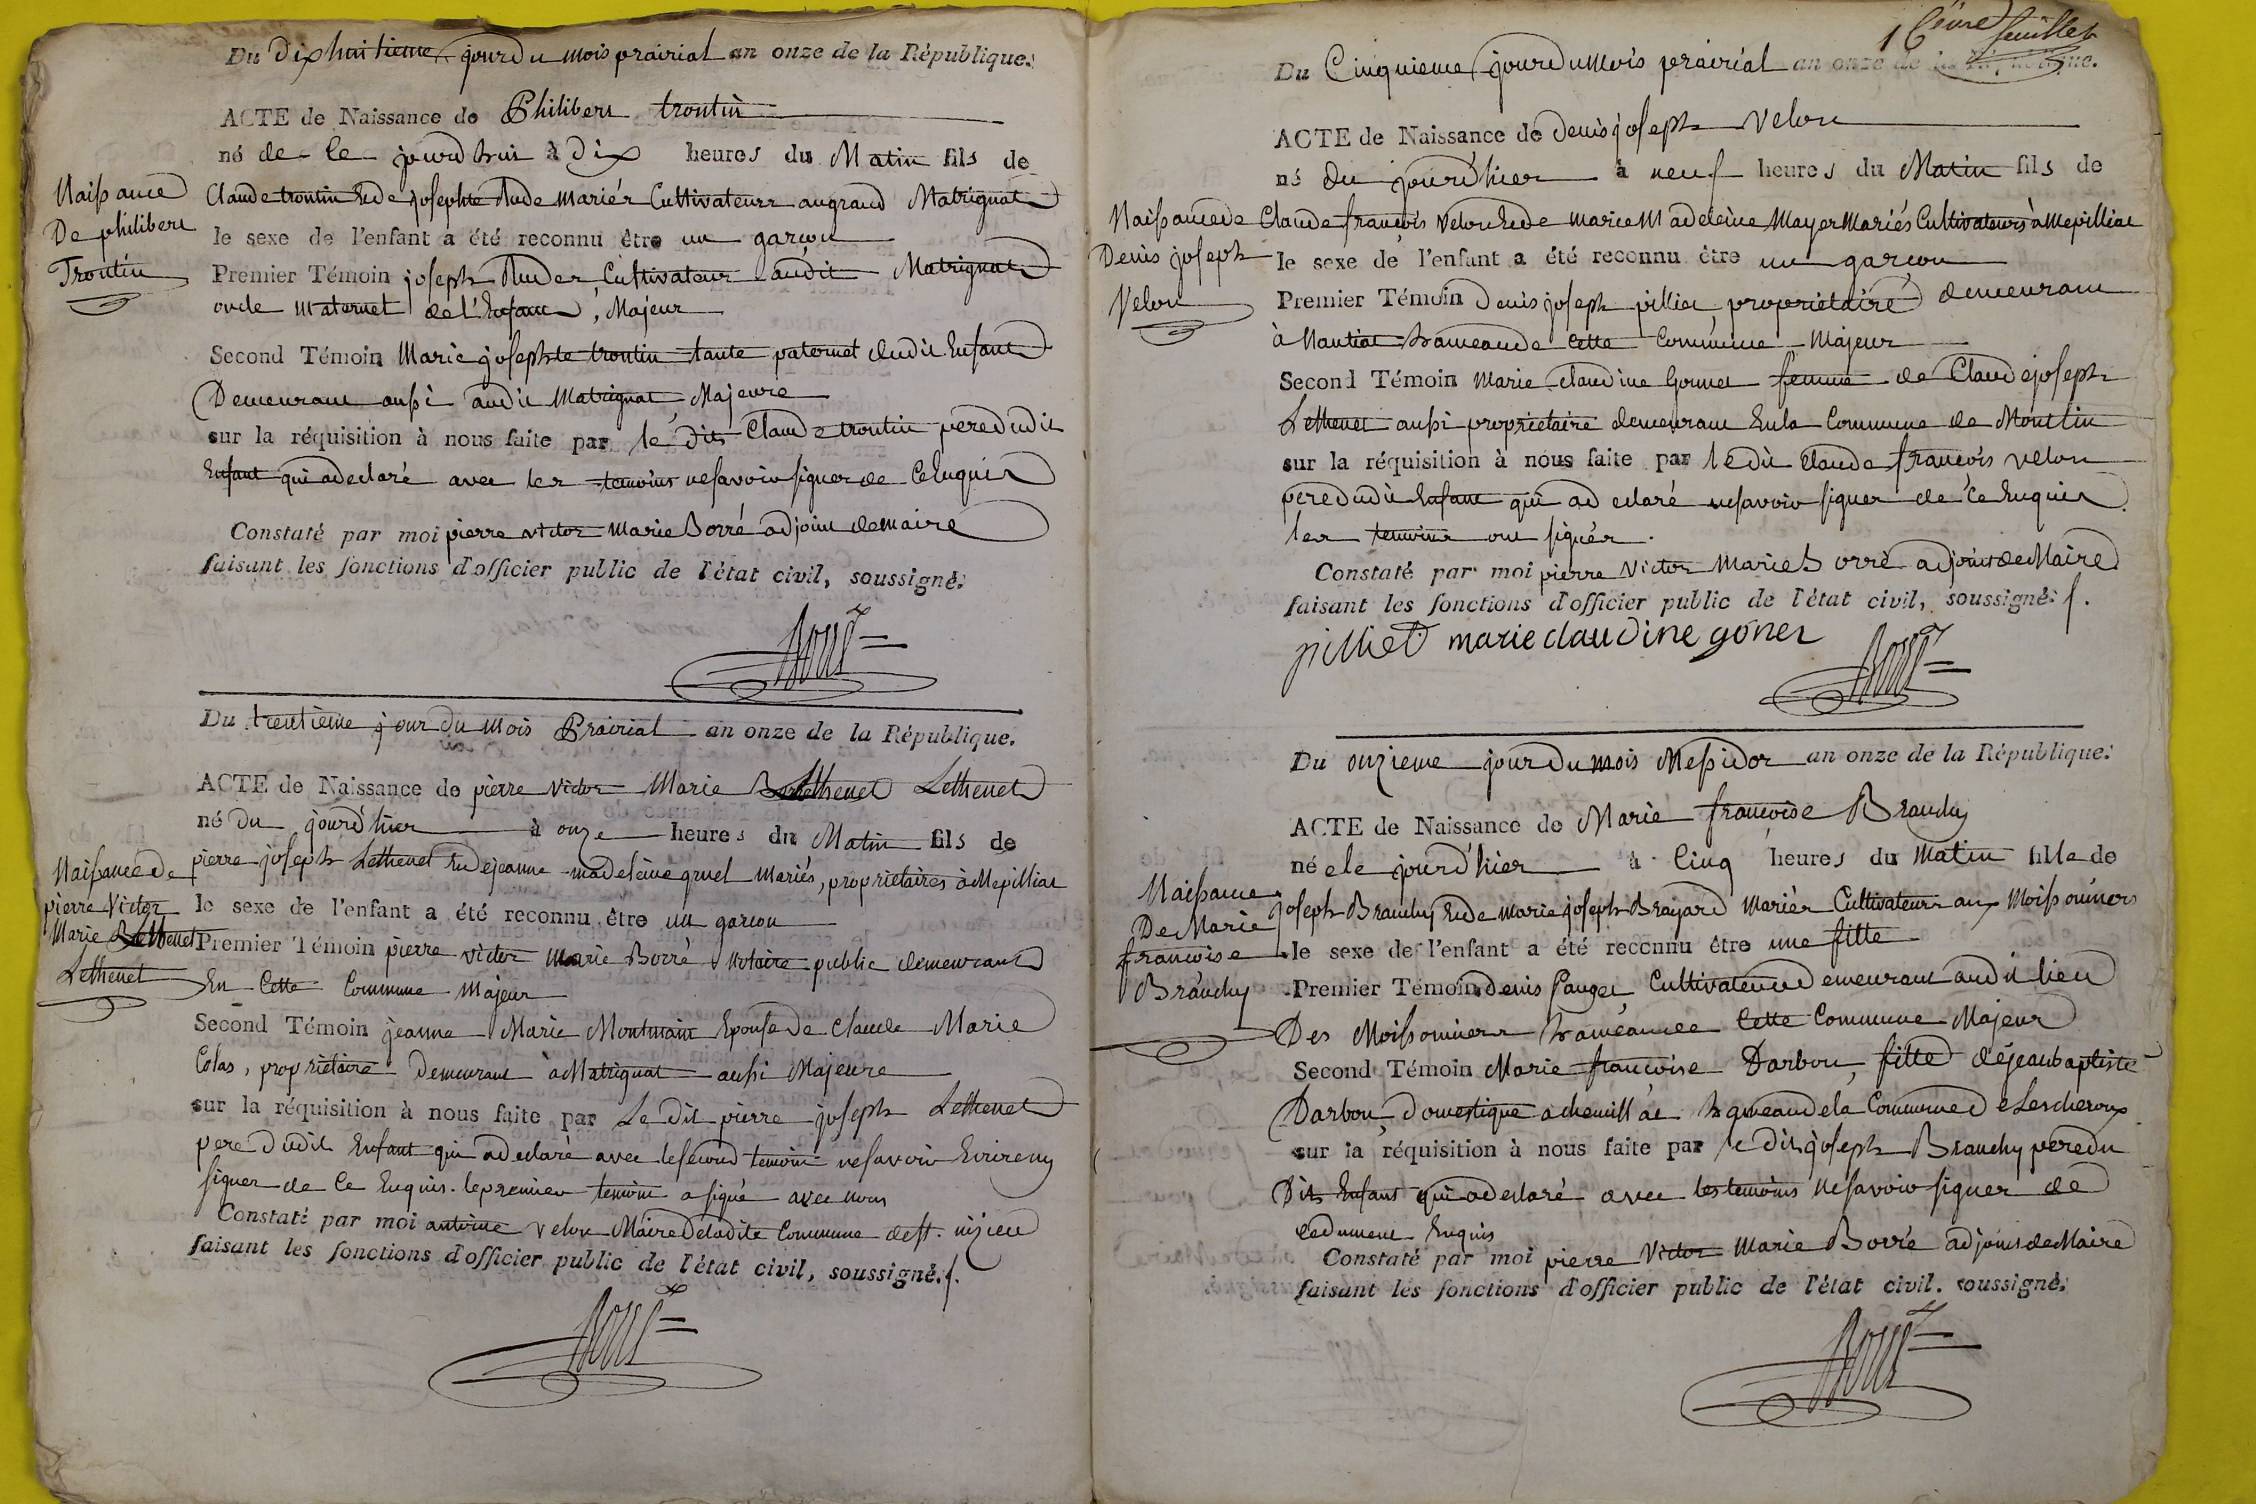 Du Dixhuitieme jour du mois prairial an onze de la République.
ACTE de Naissance de Philibert trontin
né de ce jourdhui à Dix heures du Matin fils de
Naissance
De philibert
Trontin
Claude trontin Et de josephte Aude mariés Cultivateurs au grand Matrignat
le sexe de l'enfant a été reconnu être un garcon
Premier Témoin joseph Cultivateur audit Matrignat
oncle maternel de l'Enfant, Majeur
Second Témoin Marie josephte trontin tante paternel dudit Enfant
Demeurant aussi audit Matrignat Majeure
sur la réquisition à nous faite par le dit Claude trontin pere dudit
Enfant qui a declaré avec les temoins ne savoir signer de Ce Enquis
Constaté par moi pierre victor Marie Borré adjoint de maire
faisant les fonctions d'officier public de l'état civil, soussigné.
Borré
Du trentieme jour du Mois Prairial an onze de la République.
ACTE de Naissance de pierre victor Marie Lethenet
né Du jourd'hier à onze heures du Matin fils de
Naissance de
pierre Victor
Marie
Lethenet
pierre joseph Lethenet Et de jeanne madeleine gruel Mariés, proprietaires à Mepilliat
le sexe de l'enfant a été reconnu être un garcon
Premier Témoin pierre victor Marie Borré Notaire public demeurant
En Cette Commune Majeur
Second Témoin jeanne Marie Montmain Epouse De claude Marie
Colas, propriétaire Demeurant à Matrignat aussi Majeure
sur la réquisition à nous faite par Le dit pierre joseph Lethenet
pere dudit Enfant qui a declaré avec le second temoin ne savoir Ecrire ny
signer de Ce Enquis. le premier temoin a signé avec nous
Constaté par moi antoine velon Maire De ladite Commune de St. nizier
faisant les fonctions d'officier public de l'état civil, soussigné.
Borré
1 feuillet
Du Cinquieme jour du Mois prairial an onze de la République.
ACTE de Naissance de denis joseph Velon
né du jourd'hier à neuf heures du Matin fils de
Naissance de
Denis joseph
Velon
Claude françois velon Et de marie Madeleine Mayer Mariés Cultivateurs à Mepilliat
le sexe de l'enfant a été reconnu être un garcon
Premier Témoin Denis joseph pilliet propriétaire demeurant
à Nantiat hameau de Cette Commune Majeur
Second Témoin Marie claudine Gonnet femme de Claude joseph
Lethenet aussi propriétaire demeurant En la Commune de
sur la réquisition à nous faite par le dit Claude françois velon
pere dudit Enfant qui a declaré ne savoir signer de ce Enquis
les temoins ont signés.
Constaté par moi pierre Victor Marie Borré adjoint de Maire
faisant les fonctions d'officier public de l'état civil, soussigné.
pilliet marie claudine gonet
Borré
Du onzieme jour du mois Messidor an onze de la République.
ACTE de Naissance de Marie françoise Branchy
né e le jourd'hier à Cinq heures du Matin fille de
Naissance
De Marie
françoise
Branchy
joseph Branchy Et de Marie joseph Brayard Mariés Cultivateurs aux Moissonniers
le sexe de l'enfant a été reconnu être une fille
Premier Témoin denis Pauget Cultivateur Demeurant audit lieu
Des Moissonniers hameau de Cette Commune Majeur
Second Témoin Marie françoise Darbon, fille de jean baptiste
Darbon Domestique a hameau de la Commune de Lescheroux
sur la réquisition à nous faite par le dit joseph Branchy pere du
Dit Enfant qui a declaré avec les temoins ne savoir signer de
Ce dument Enquis
Constaté par moi pierre Victor Marie Borré adjoint de Maire
faisant les fonctions d'officier public de l'état civil. soussigné.
Borré